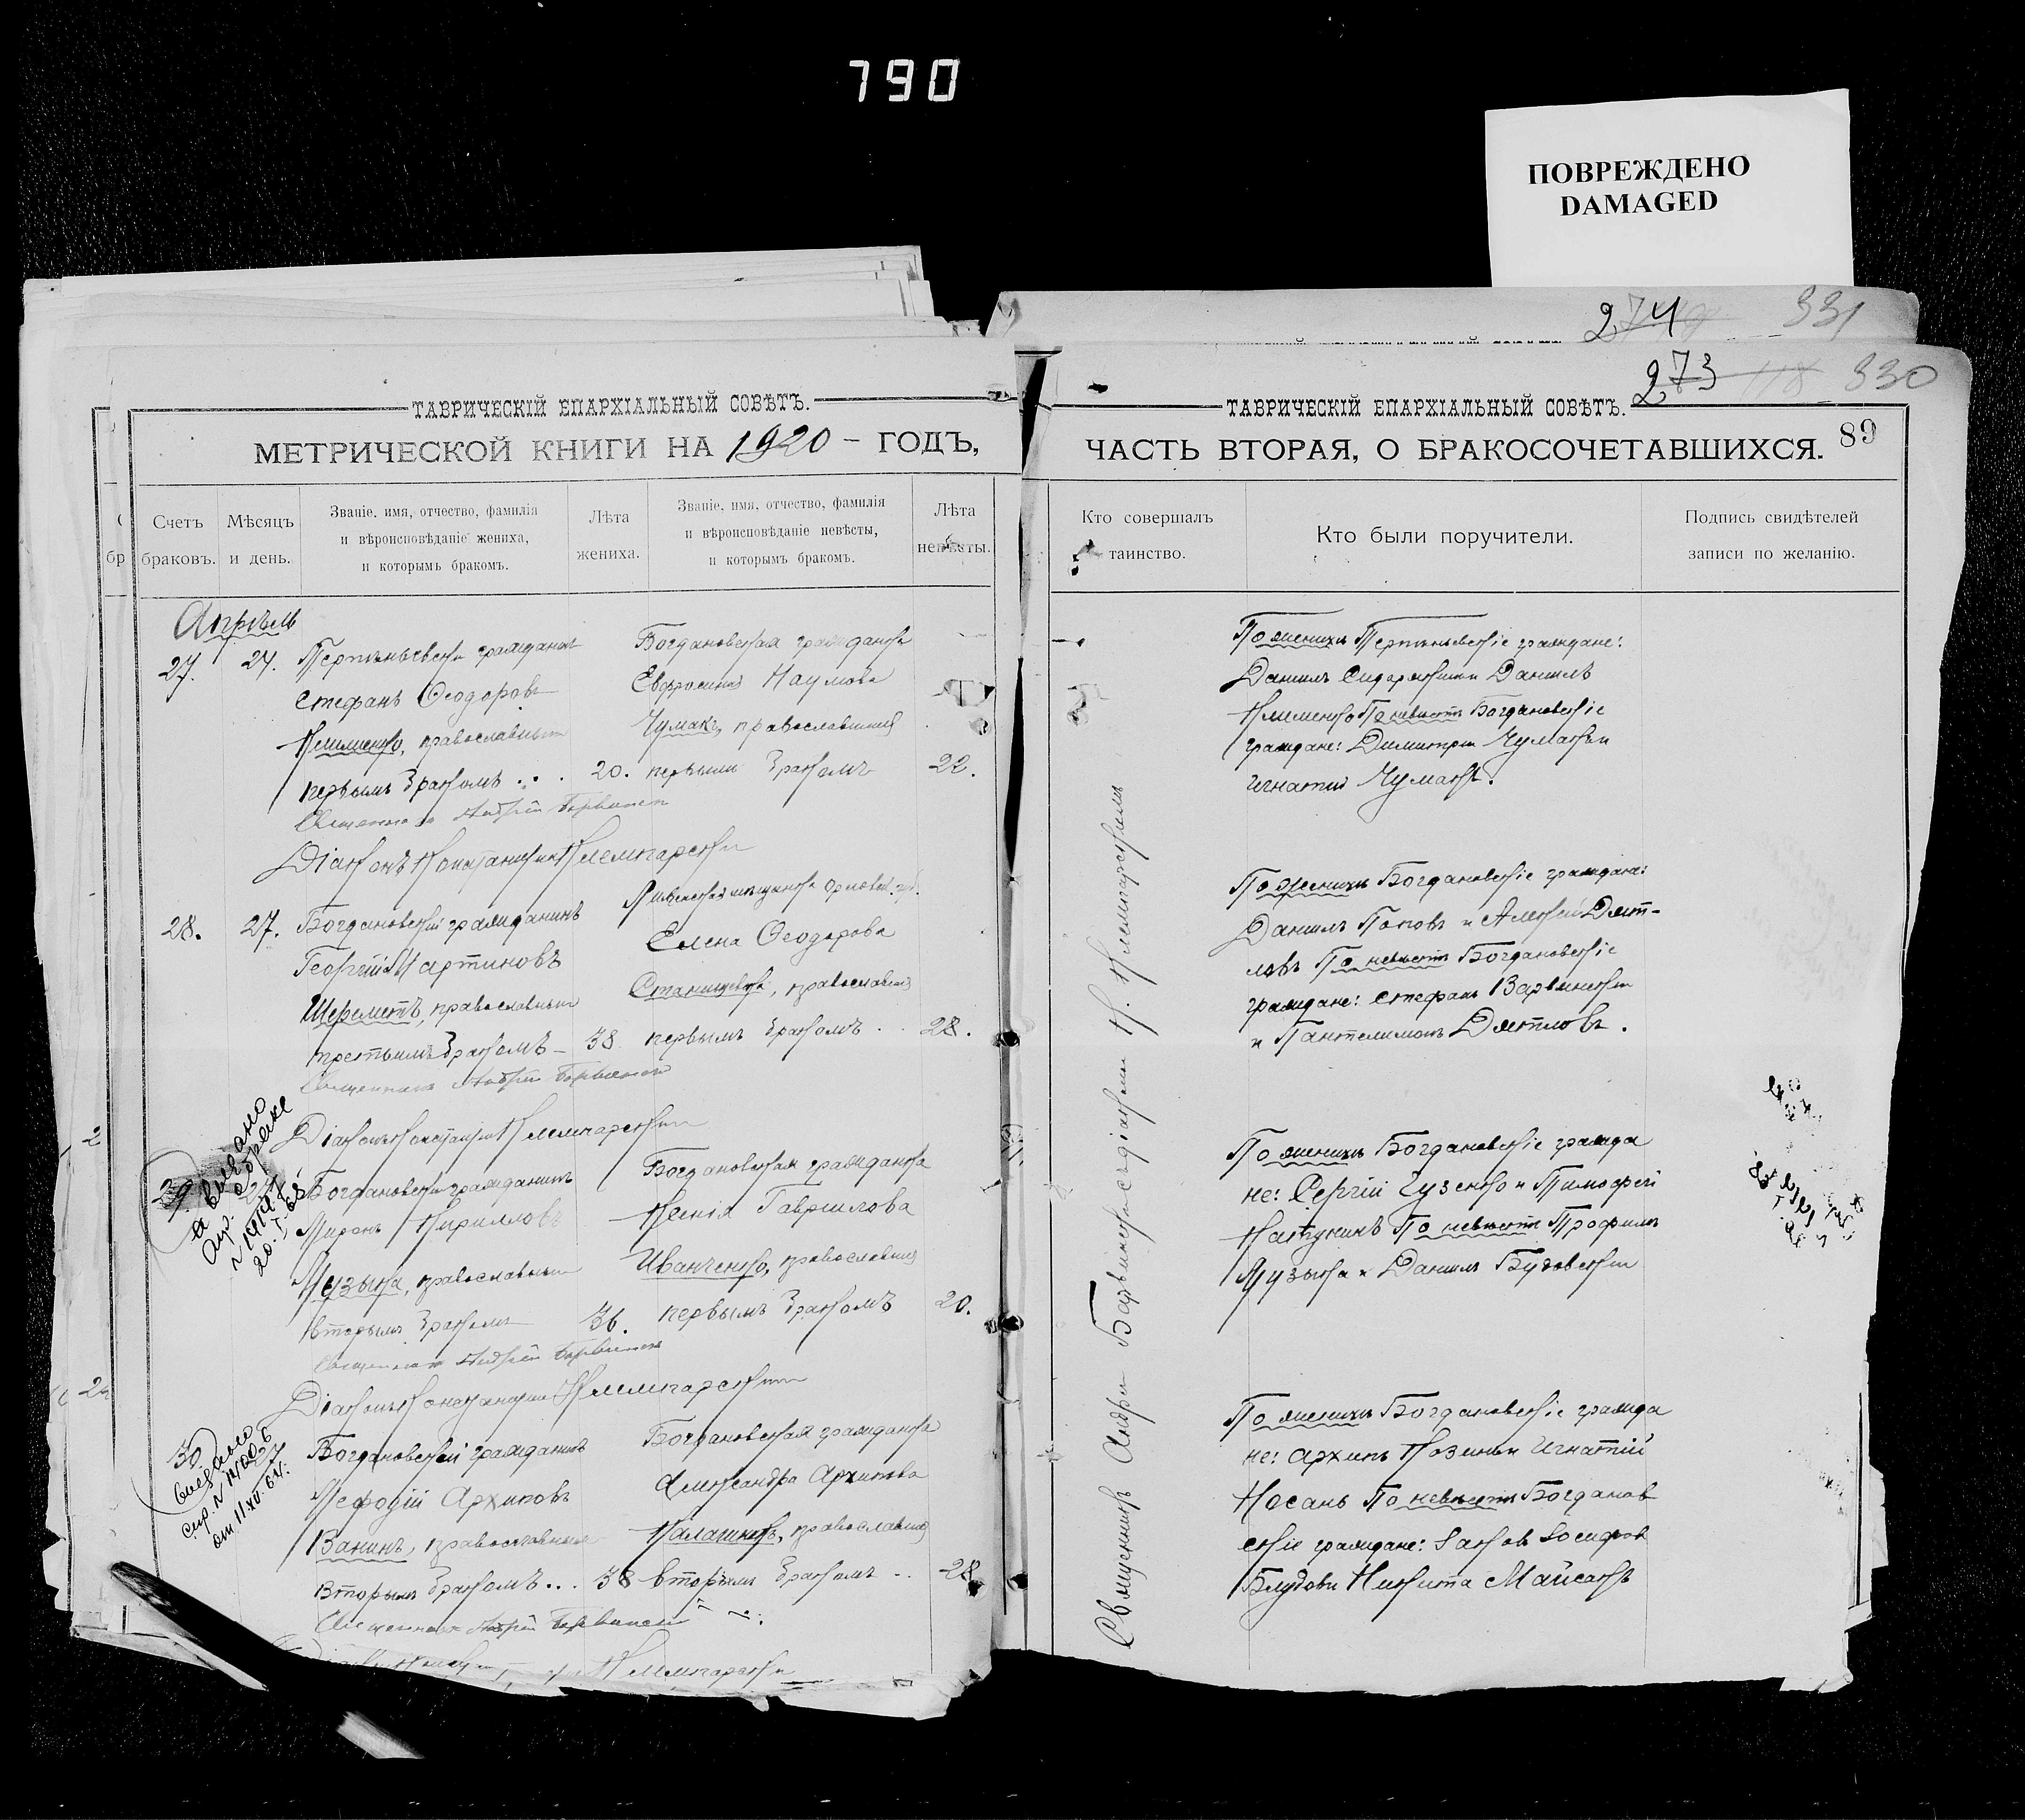 790
ПОВРЕЖДЕНО
DAMAGED
274 331
273 118 330
ТАВРИЧЕСКІЙ ЕПАРХІАЛЬНЫЙ СОВѢТЪ.
МЕТРИЧЕСКОЙ КНИГИ НА 1920 - ГОДЪ,
Счетъ браковъ.
Мѣсяцъ и день.
Званіе, имя, отчество, фамилія
и вѣроисповѣданіе жениха,
и которымъ бракомъ.
Лѣта
жениха.
Званіе, имя, отчество, фамилія
и вѣроисповѣданіе невѣсты,
и которымъ бракомъ.
Лѣта
невѣсты.
Апрѣль
27. 24. гражданинъ
Стефанъ Ѳеодоровъ
Клименко, православный
первымъ бракомъ . . . 20.
Богдановская гражданка
Евфросинія Наумова
Чумакъ, православная
первымъ бракомъ 22.
Священникъ Андрей Барвинскій
Діаконъ Константинъ Клемпарскій
28. 27. Богдановскій гражданинъ
Георгій Мартиновъ
Шереметъ, православный
третьимъ бракомъ – 38
Ливенская мѣщанка Орловск. губ.
Елена Ѳеодорова
православная
первымъ бракомъ . . 28.
Священникъ Андрей Барвинскій
Діаконъ Константинъ Клемпарскій
29. 27. Богдановскій гражданинъ
Миронъ Кирилловъ
Музыка, православный
вторымъ бракомъ 36.
Богдановская гражданка
Ксенія Гаврилова
Иванченко, православная
первымъ бракомъ 20.
выдано
о браке
20.I.65
Священникъ Андрей Барвинскій
Діаконъ Константинъ Клемпарскій
30 27 Богдановскій гражданинъ
Мефодій Архиповъ
Ванинъ, православный
вторымъ бракомъ . . . 38
Богдановская гражданка
Александра Архипова
православная
вторымъ бракомъ . . 28
выдано
спр. N
от 11.XII.64г.
Священникъ Андрей Барвинскій
Клемпарскій
ТАВРИЧЕСКІЙ ЕПАРХІАЛЬНЫЙ СОВѢТЪ.
ЧАСТЬ ВТОРАЯ, О БРАКОСОЧЕТАВШИХСЯ. 89
Кто совершалъ
таинство.
Кто были поручители.
Подпись свидѣтелей
записи по желанію.
Священникъ Андрей Барвинскій съ діакономъ К. Клемпарскимъ
По женихѣ граждане:
Даніилъ и Даніилъ
Клименко По невѣстѣ Богдановскіе
граждане: Димитрій Чумакъ и
Игнатій Чумакъ.
По женихѣ Богдановскіе граждане:
Даніилъ Поповъ и Алексѣй Дят-
ловъ По невѣстѣ Богдановскіе
граждане: Стефанъ Варвинскій
и Пантелимонъ Дятловъ.
По женихѣ Богдановскіе гражда
не: Сергій Гузенко и Тимоѳей
По невѣстѣ Трофимъ
Музыка и Даніилъ
По женихѣ Богдановскіе гражда
не: Архипъ и Игнатій
Носань По невѣстѣ Богданов
скіе граждане: Іаковъ
Никита Майсакъ